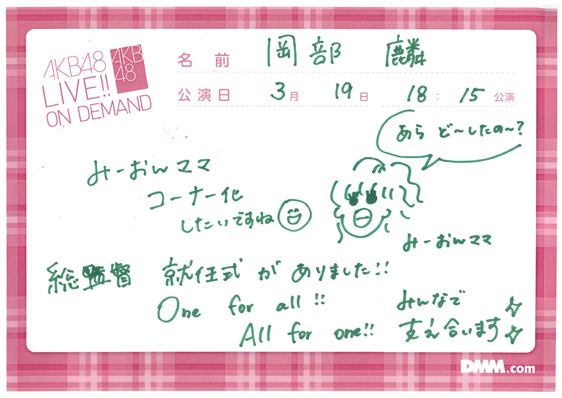 AKB48
LIVE!!
ON DEMAND
AKB
48
名前 岡部 麟
公演日 3月 19日 18:15 公演
あら ど〜したの〜?
みーおんママ
コーナー化
したいですね
みーおんママ
総監督 就任式 が ありました!!
One for all !! みんなで
All for one!! 支え合います
DMM.com